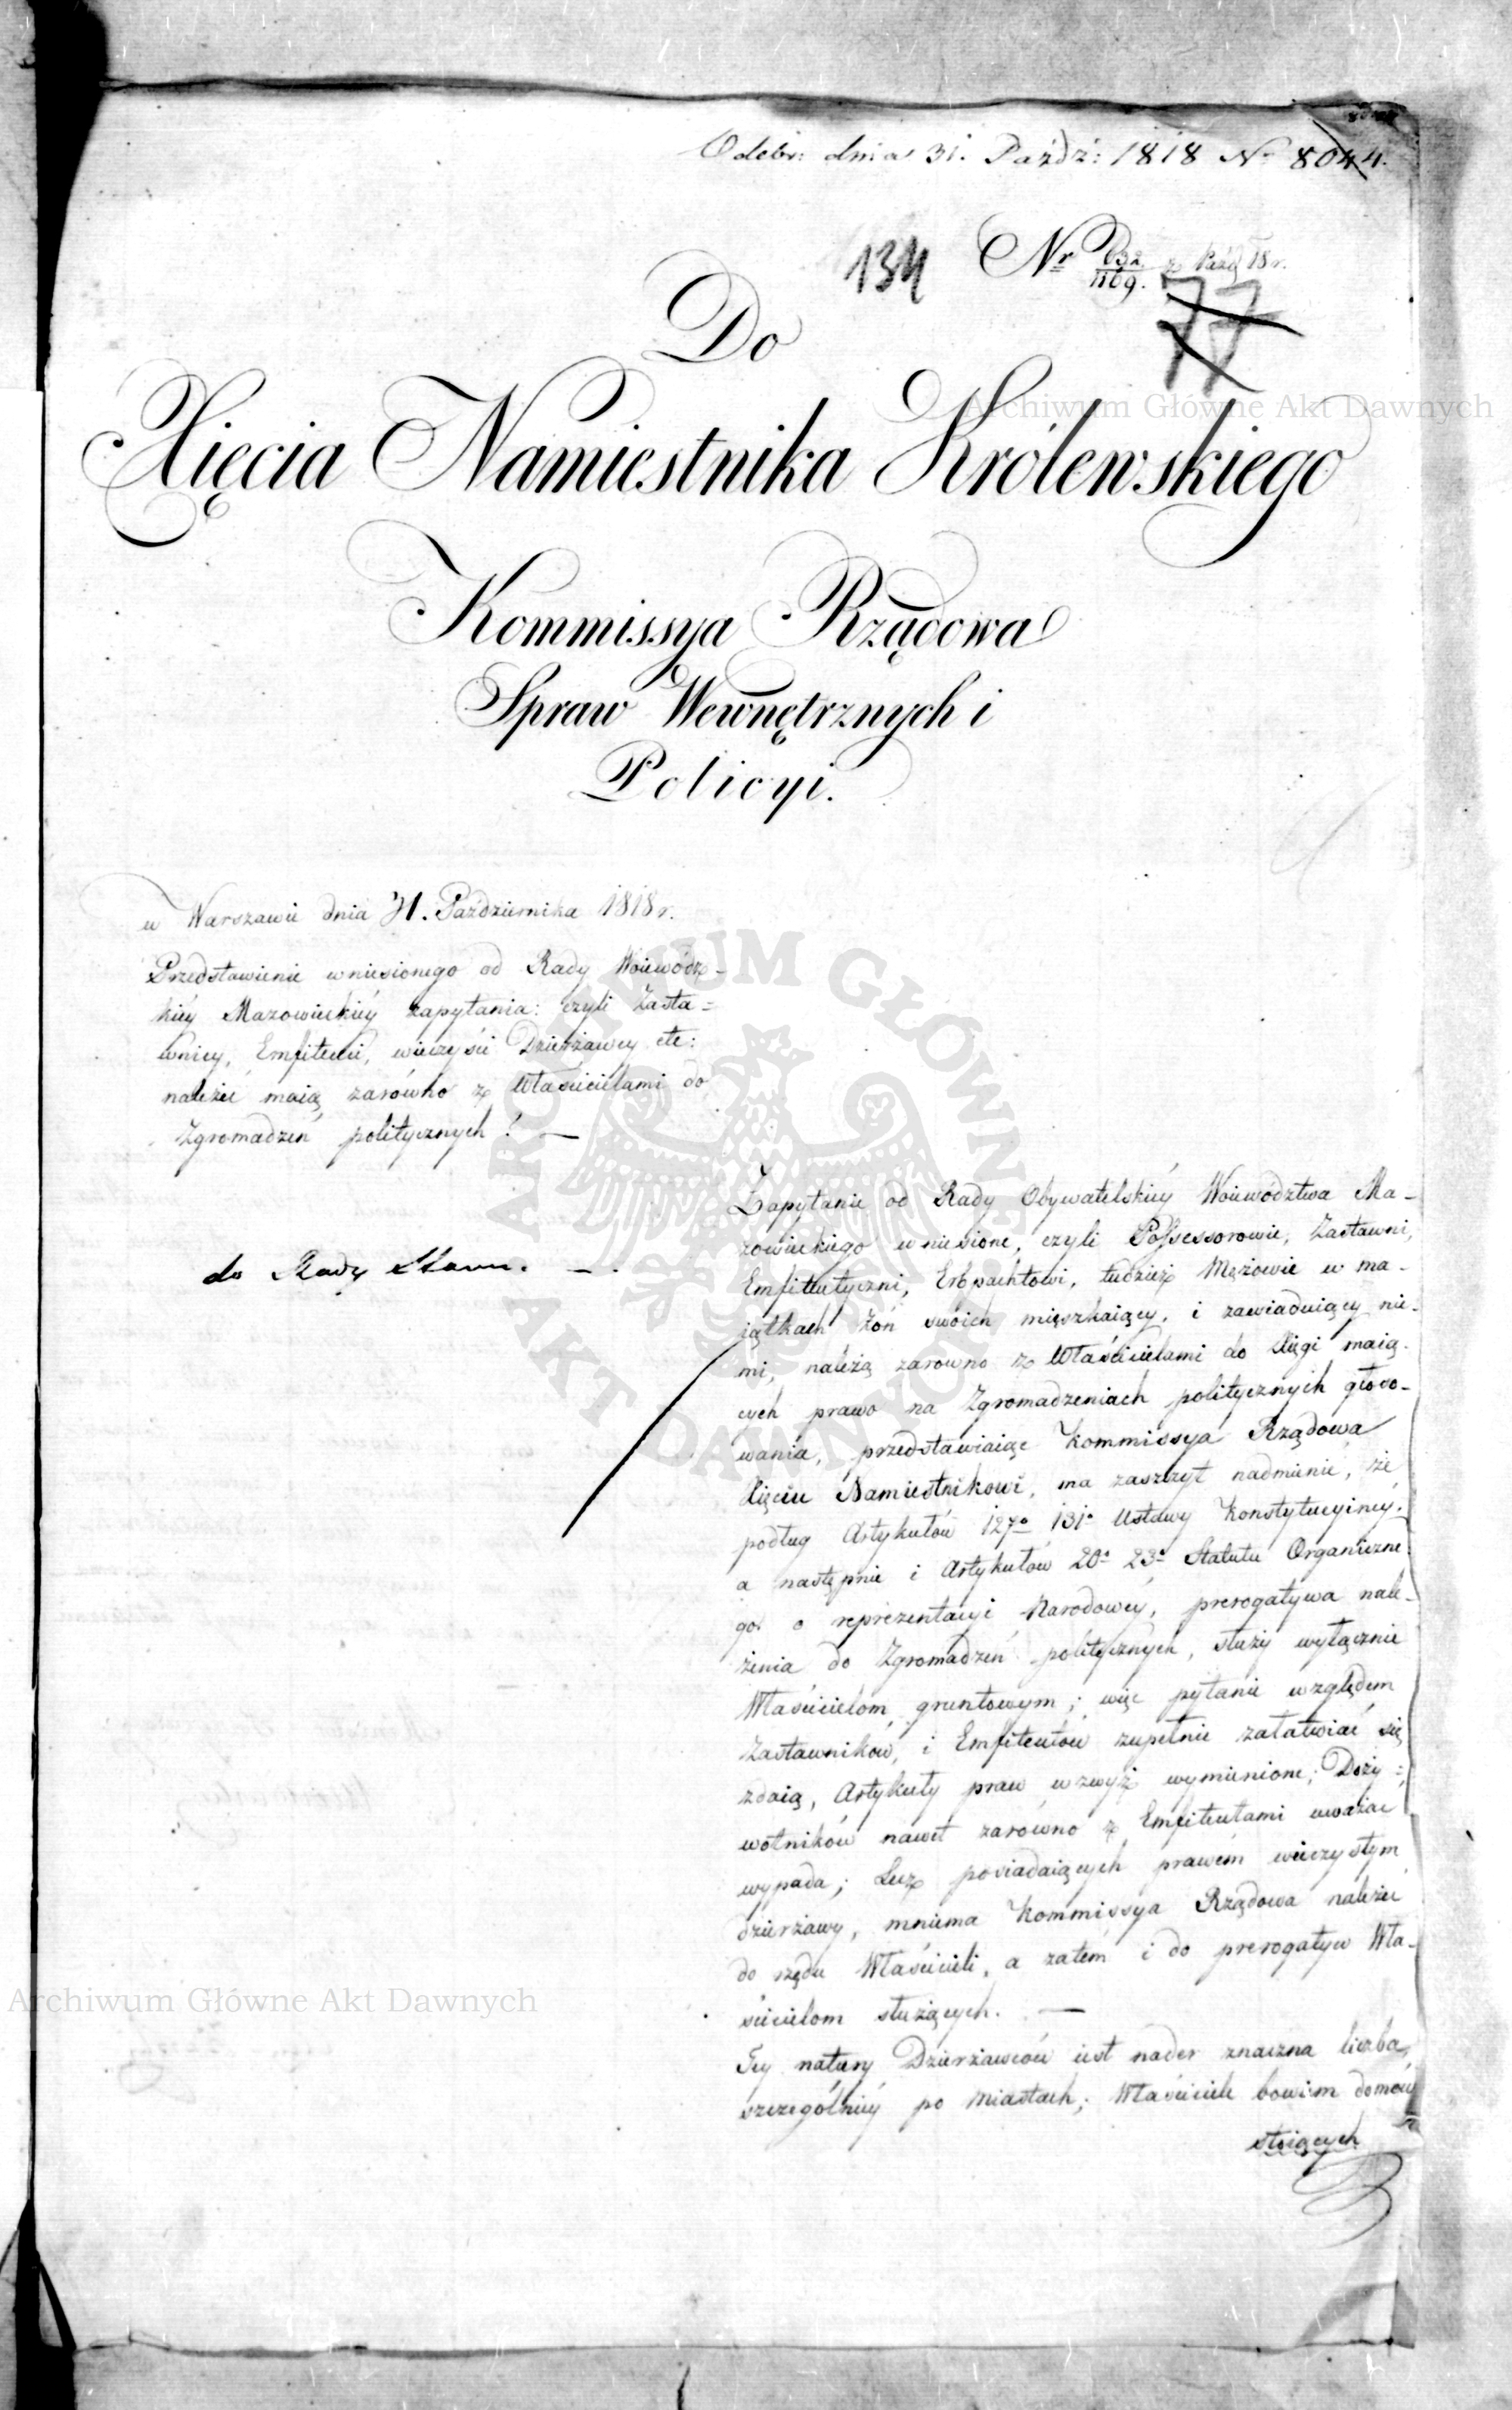 Odebr: dnia 31. Paźdź: 1818 No 8044.
134 Nr 1169. z Paźd 18 r.
77
Do
Xięcia Namiestnika Królewskiego
Kommissya Rządowa
Spraw Wewnętrznych i
Policyi.
w Warszawie dnia 31. Października 1818 r.
Przedstawienie wniesionego od Rady Woiewódz-
kiéy Mazowieckiéy zapytania: czyli Zasta=
wnicy, Emfiteuci, wieczyści Dzierżawcy etc:
należeć maią zarówno z Właścicielami do
Zgromadzeń politycznych? —
do Rady Stanu. —
Zapytanie od Rady Obywatelskiéy Woiewództwa Ma-
zowieckiego wniesione, czyli Possessorowie, Zastawni,
Emfiteutyczni, Erbpachtowi, tudzież Mężowie w ma-
iątkach Żon swóich mięszkaiący, i zawiaduiący nie-
mi, należą zarowno z Właścicielami do Xięgi maią-
cych prawo na Zgromadzeniach politycznych głoso-
wania, przedstawiaiąc Kommissya Rządowa
Xięciu Namiestnikowi, ma zaszczyt nadmienić, że
podług Artykułów 127o 131o Ustawy Konstytucyinéy,
a następnie i Artykułów 20o 23o Statutu Organiczne-
go o reprezentacyi Narodowéy, prerogatywa nale-
żenia do Zgromadzeń politycznych, służy wyłącznie
Właścicielom gruntowym; więc pytanie względem
Zastawników, i Emfiteutów zupełnie załatwiać się
zdaią, Artykuły praw wzwyż wymienione; Doży=
wotników nawet zarówno z Emfiteutami uważać
wypada; Lecz posiadaiących prawem wieczystym
dzierżawy, mniema Kommissya Rządowa należeć
do rzędu Właścicieli, a zatém i do prerogatyw Wła-
ścicielom służących. —
Téy natury Dzierżawców iest nader znaczna liczba,
szczególniéy po Miastach; Właściciele bowiem domów
stoiących
Archiwum Główne Akt Dawnych
ARCHIWUM GŁÓWNE AKT DAWNYCH
Archiwum Główne Akt Dawnych